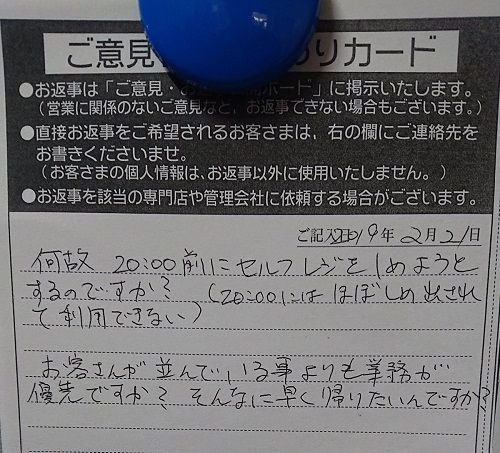 ご意見 わりカード
●お返事は「ご意見・お 開ボード」に掲示いたします。
（営業に関係のないご意見など、お返事できない場合もございます。）
●直接お返事をご希望されるお客さまは、右の欄にご連絡先を
お書きくださいませ。
（お客さまの個人情報は、お返事以外に使用いたしません。）
●お返事を該当の専門店や管理会社に依頼する場合がございます。
ご記入日 19年 2月21日
何故 20:00前にセルフレジをしめようと
するのですか？ （20:00にはほぼしめ出され
て利用できない）
お客さんが並んでいる事よりも業務が
優先ですか？ そんなに早く帰りたいんですか？